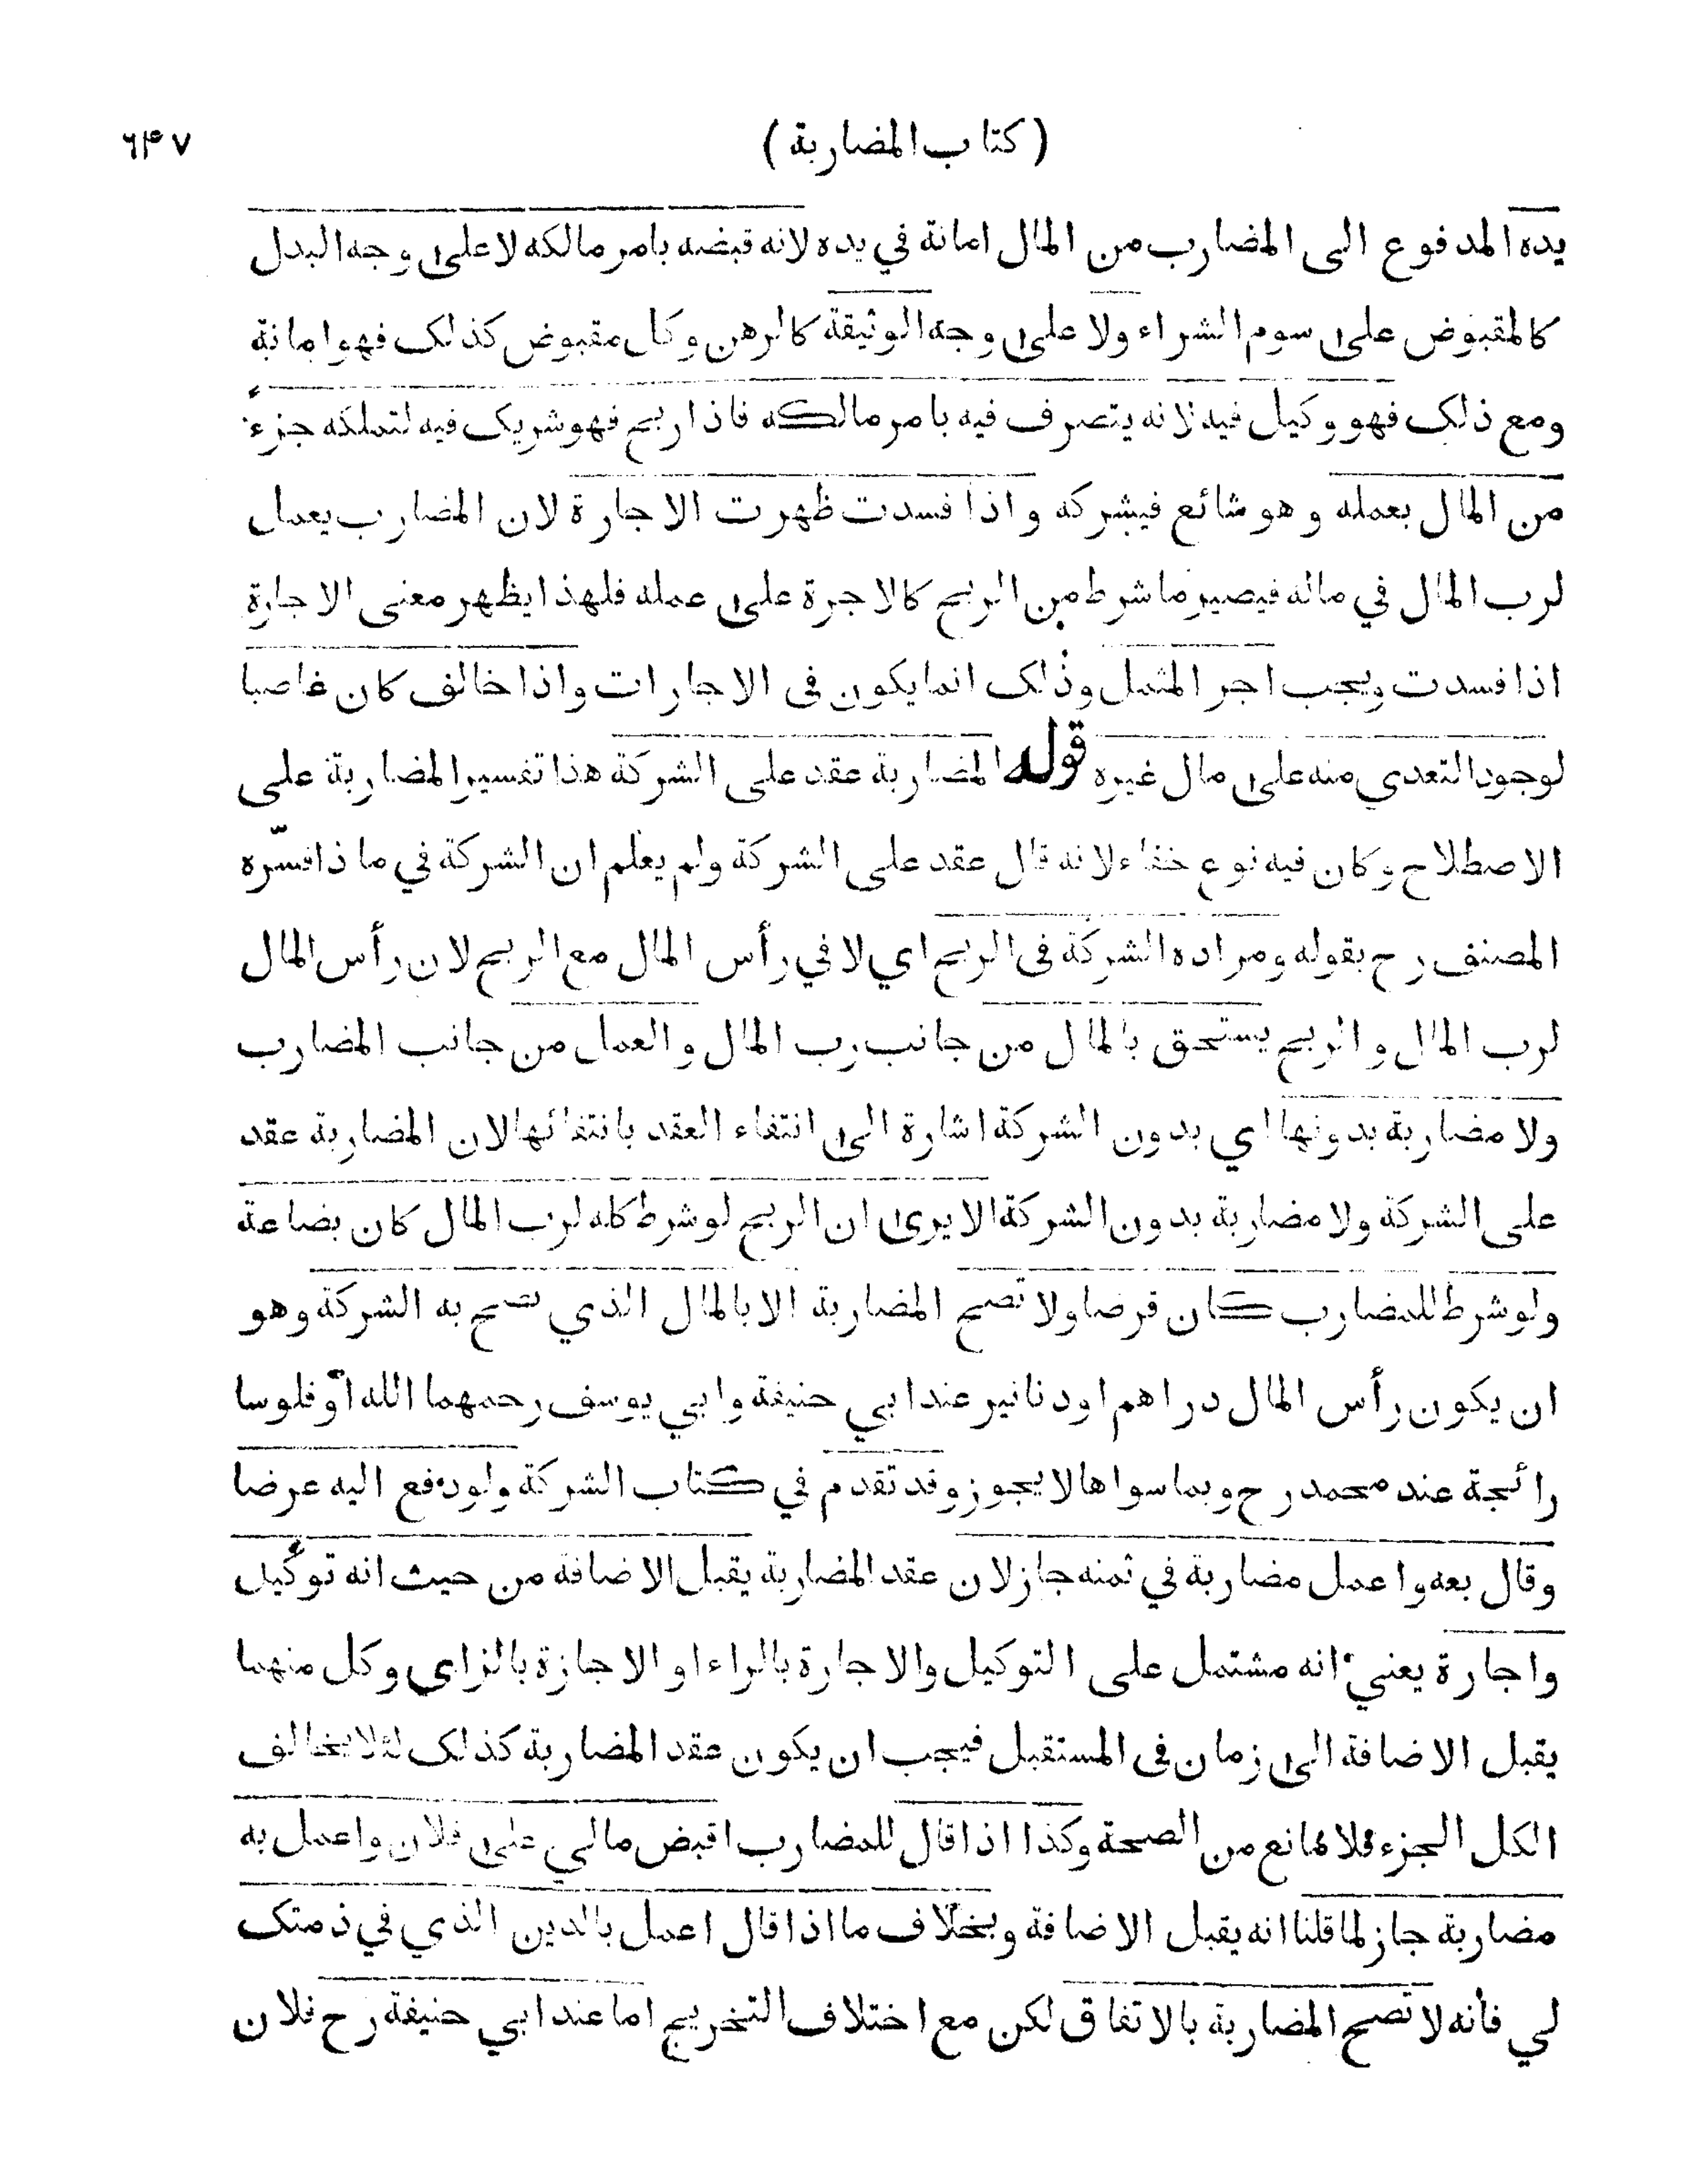 ( كتاب المضاربة )
٦۴٧
يده المدفوع الى المضارب من المال امانة في يده لانه قبضه بامر مالكه لا على وجه البدل
كالمقبوض على سوم الشراء ولا على وجه الوثيقة كالرهن وكل مقبوض كذلك فهو امانة
ومع ذلك فهو وكيل فيه لانه يتصرف فيه بامر مالكه فاذا ربح فهو شريك فيه لتملكه جزءً
من المال بعمله وهو شائع فيشركه واذا فسدت ظهرت الاجارة لان المضارب يعمل
لرب المال في ماله فيصير ما شرط من الربح كالاجرة على عمله فلهذا يظهر معنى الاجارة
اذا فسدت ويجب اجر المثل وذلك انما يكون في الاجارات واذا خالف كان غاصبا
لوجود التعدي منه على مال غيره قوله المضاربة عقد على الشركة هذا تفسير المضاربة على
الاصطلاح وكان فيه نوع خفاء لانه قال عقد على الشركة ولم يعلم ان الشركة في ما ذا فسّره
المصنف رح بقوله ومراده الشركة في الربح اي لا في رأس المال مع الربح لان رأس المال
لرب المال والربح يستحق بالمال من جانب رب المال والعمل من جانب المضارب
ولا مضاربة بدونها اي بدون الشركة اشارة الى انتفاء العقد بانتفائها لان المضاربة عقد
على الشركة ولا مضاربة بدون الشركة الا يرى ان الربح لو شرط كله لرب المال كان بضاعة
ولو شرط للمضارب كان قرضا ولا تصح المضاربة الا بالمال الذي تصح به الشركة وهو
ان يكون رأس المال دراهم او دنانير عند ابي حنيفة وابي يوسف رحمهما الله او فلوسا
رائجة عند محمد رح وبما سواها لا يجوز وقد تقدم في كتاب الشركة ولو دفع اليه عرضا
وقال بعه واعمل مضاربة في ثمنه جاز لان عقد المضاربة يقبل الاضافة من حيث انه توكيل
واجارة يعني انه مشتمل على التوكيل والاجارة بالراء او الاجازة بالزاي وكل منهما
يقبل الاضافة الى زمان في المستقبل فيجب ان يكون عقد المضاربة كذلك لئلا يخالف
الكل الجزء فلا مانع من الصحة وكذا اذا قال للمضارب اقبض مالي على فلان واعمل به
مضاربة جاز لما قلنا انه يقبل الاضافة وبخلاف ما اذا قال اعمل بالدين الذي في ذمتك
لي فأنه لا تصح المضاربة بالاتفاق لكن مع اختلاف التخريج اما عند ابي حنيفة رح فلان